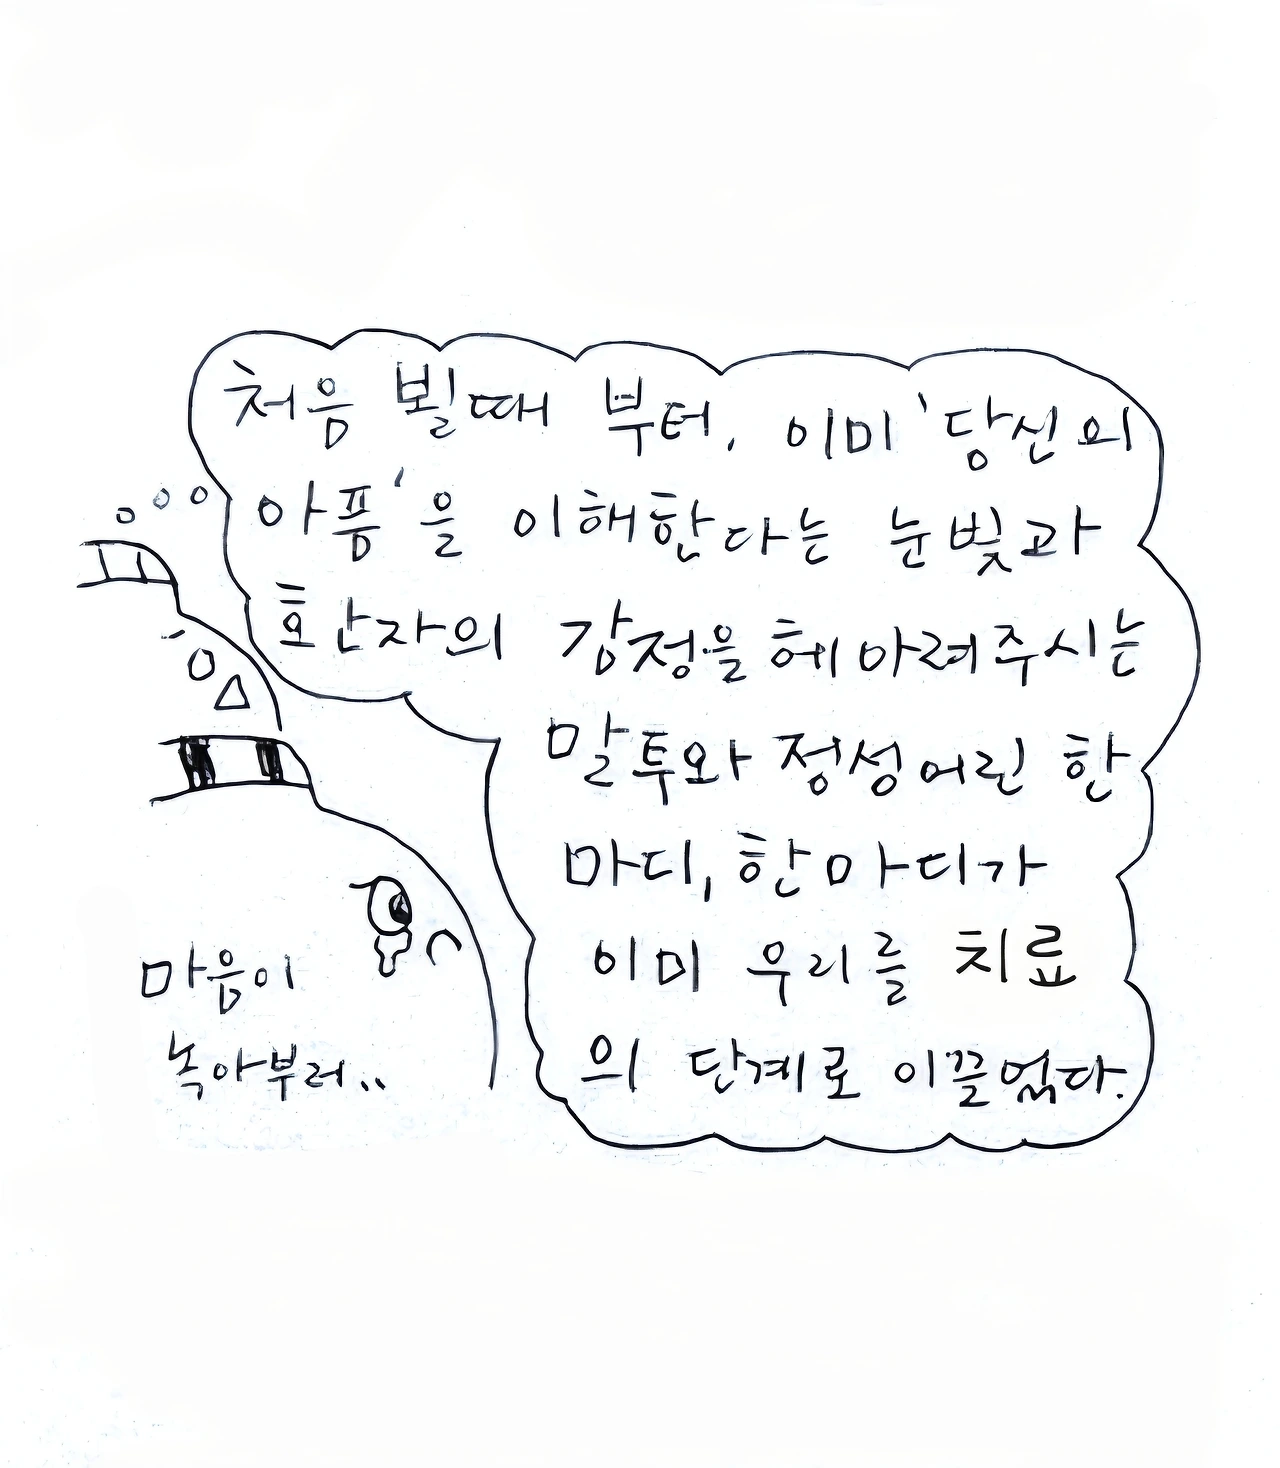 처음 뵐때 부터, 이미 '당신의
아픔'을 이해한다는 눈빛과
환자의 감정을 헤아려주시는
말투와 정성어린 한
마디, 한마디가
이미 우리를 치료
의 단계로 이끌었다.
마음이
녹아부러..